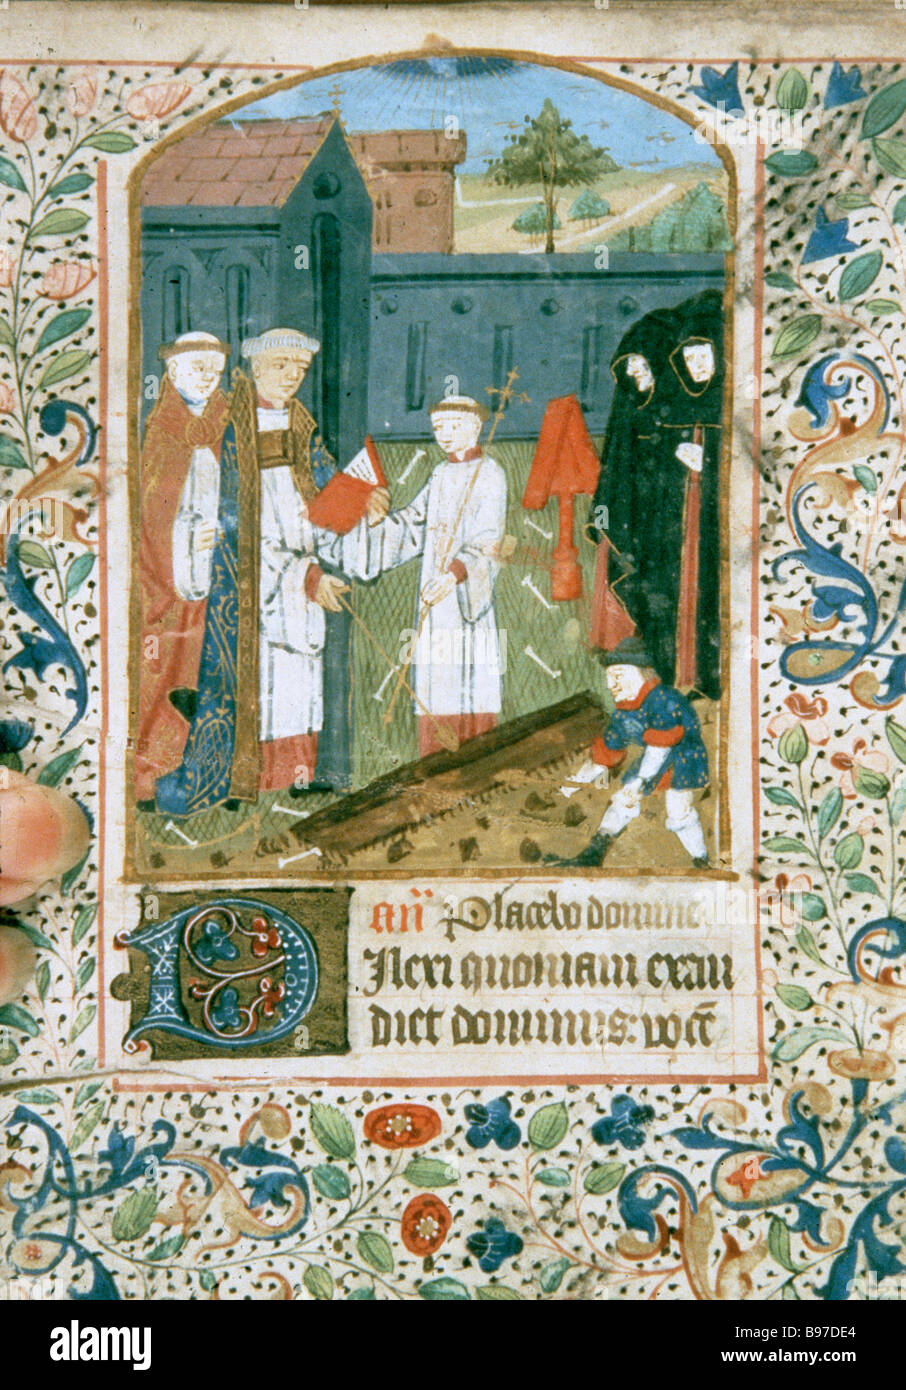 Añ Placebo domine
Dilexi quoniam exau
diet dominus: vocē
alamy
Image ID: B97DE4
www.alamy.com